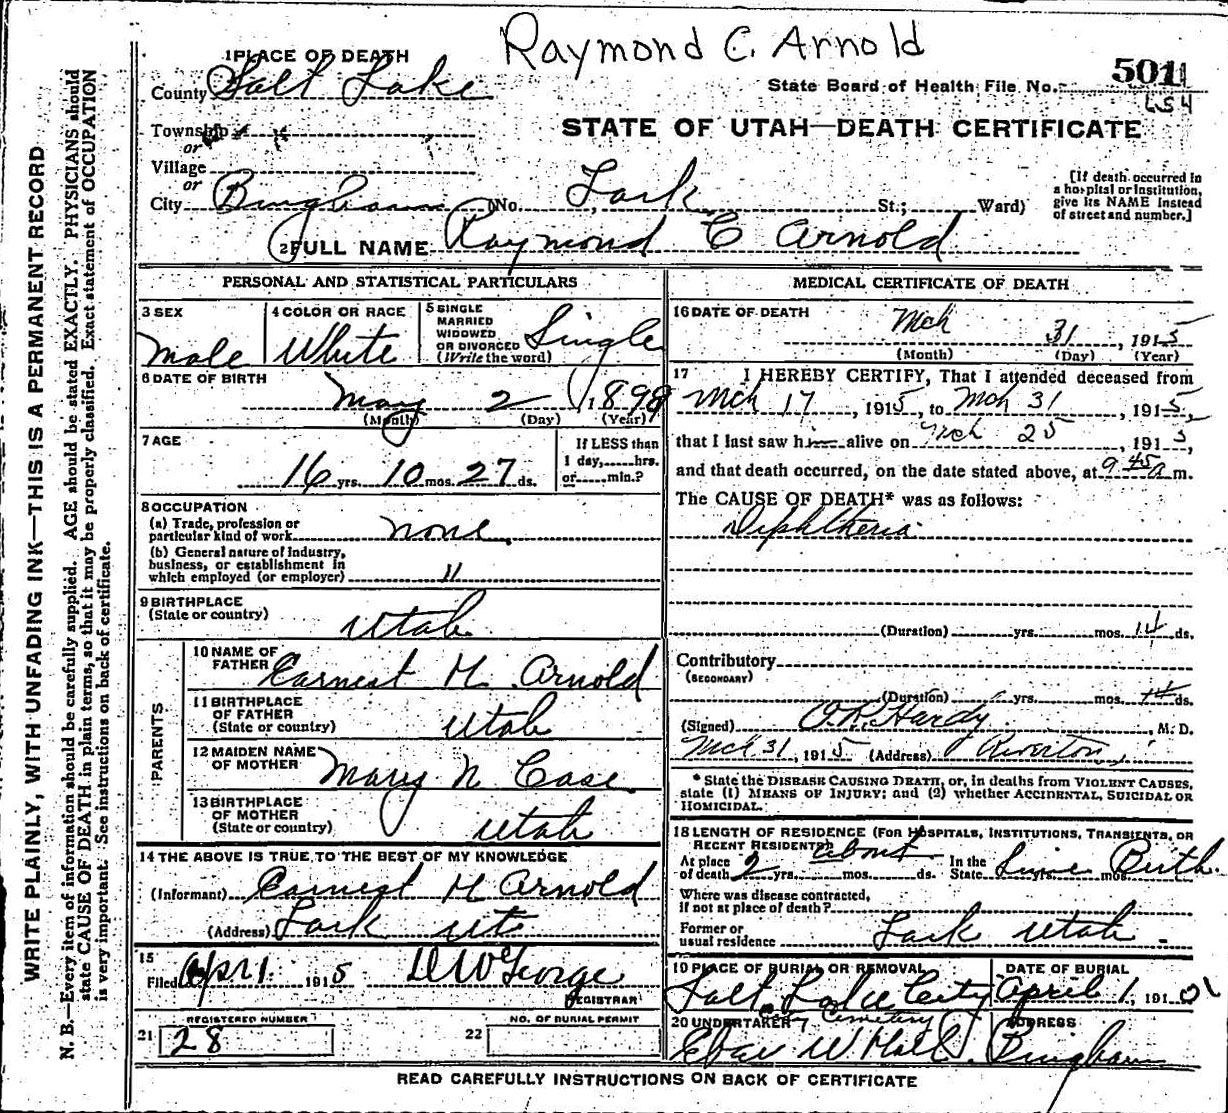 Raymond C. Arnold
1 PLACE OF DEATH
County Salt Lake
State Board of Health File No. 5011
654
Township
or
STATE OF UTAH—DEATH CERTIFICATE
Village
or
City Bingham (No. Lark St.; Ward)
[If death occurred in a hospital or institution, give its NAME instead of street and number.]
2 FULL NAME Raymond C Arnold
PERSONAL AND STATISTICAL PARTICULARS
3 SEX Male
4 COLOR OR RACE White
5 SINGLE MARRIED WIDOWED OR DIVORCED (Write the word) Single
6 DATE OF BIRTH
May 2, 1898
(Month) (Day) (Year)
7 AGE
16 yrs. 10 mos. 27 ds.
If LESS than 1 day,......hrs. or......min.?
8 OCCUPATION
(a) Trade, profession or particular kind of work none
(b) General nature of industry, business, or establishment in which employed (or employer) "
9 BIRTHPLACE
(State or country) Utah
PARENTS
10 NAME OF FATHER Earnest H. Arnold
11 BIRTHPLACE OF FATHER (State or country) Utah
12 MAIDEN NAME OF MOTHER Mary N Case
13 BIRTHPLACE OF MOTHER (State or country) Utah
14 THE ABOVE IS TRUE TO THE BEST OF MY KNOWLEDGE
(Informant) Earnest H Arnold
(Address) Lark Ut
15
Filed Apr 1 1915 D W George
REGISTRAR
REGISTERED NUMBER
21 28
NO. OF BURIAL PERMIT
22
MEDICAL CERTIFICATE OF DEATH
16 DATE OF DEATH
Mch 31, 1915
(Month) (Day) (Year)
17 I HEREBY CERTIFY, That I attended deceased from
Mch 17, 1915, to Mch 31, 1915,
that I last saw him alive on Mch 25, 1915
and that death occurred, on the date stated above, at 9 45 a m.
The CAUSE OF DEATH* was as follows:
Diphtheria
(Duration) yrs. mos. 14 ds.
Contributory
(SECONDARY)
(Duration) yrs. mos. 14 ds.
(Signed) O.R. Hardy, M. D.
Mch 31, 1915 (Address) Riverton
* State the DISEASE CAUSING DEATH, or, in deaths from VIOLENT CAUSES,
state (1) MEANS OF INJURY; and (2) whether ACCIDENTAL, SUICIDAL OR
HOMICIDAL.
18 LENGTH OF RESIDENCE (FOR HOSPITALS, INSTITUTIONS, TRANSIENTS, OR
RECENT RESIDENTS)
At place of death 2 yrs. about mos. ds. In the State Since Birth yrs. mos.
Where was disease contracted,
if not at place of death?
Former or usual residence Lark Utah
19 PLACE OF BURIAL OR REMOVAL
Salt Lake City
City Cemetery
DATE OF BURIAL
April 1, 191
20 UNDERTAKER
W Hall
ADDRESS
Bingham
READ CAREFULLY INSTRUCTIONS ON BACK OF CERTIFICATE
WRITE PLAINLY, WITH UNFADING INK—THIS IS A PERMANENT RECORD
N. B.—Every item of information should be carefully supplied. AGE should be stated EXACTLY. PHYSICIANS should
state CAUSE OF DEATH in plain terms, so that it may be properly classified. Exact statement of OCCUPATION
is very important. See instructions on back of certificate.